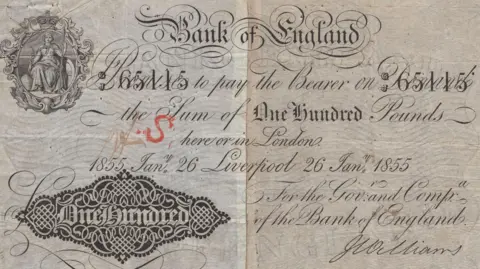 Bank of England
65115 to pay the Bearer on 65115
the Sum of One Hundred Pounds
here or in London
1855 Janʸ. 26 Liverpool 26 Janʸ. 1855
For the Govʳ. and Compᵃ.
of the Bank of England
One Hundred
J Williams